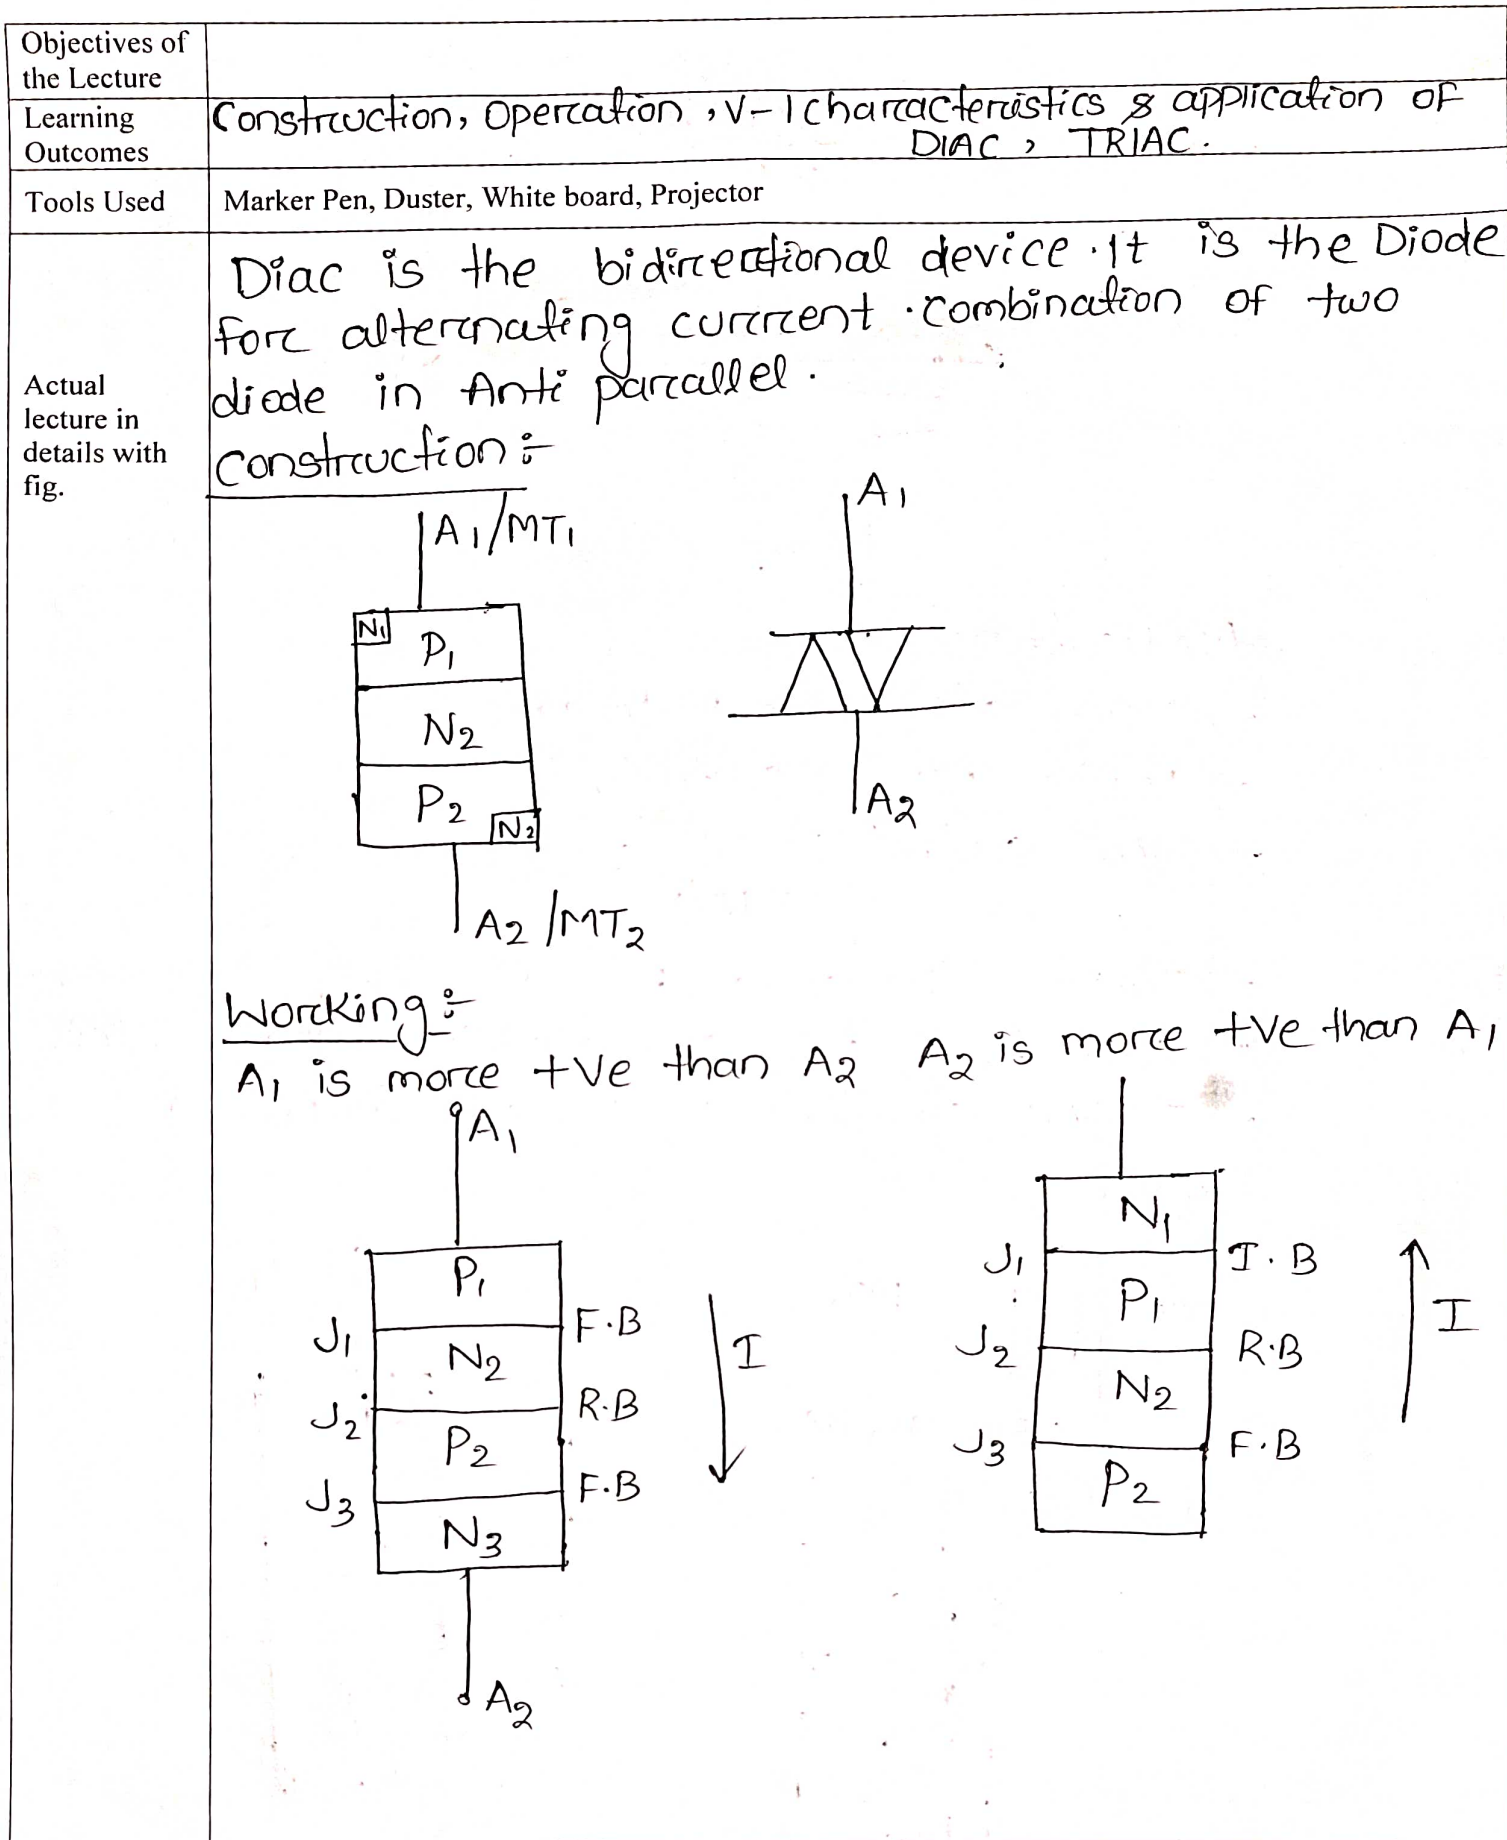 Objectives of
the Lecture
Learning
Outcomes
Construction, Operation, V-I characteristics & application of
DIAC, TRIAC.
Tools Used
Marker Pen, Duster, White board, Projector
Actual
lecture in
details with
fig.
Diac is the bidirectional device. It is the Diode
for alternating current. combination of two
diode in Anti parallel.
Construction :-
A1/MT1
N1
P1
N2
P2
N2
A2/MT2
A1
A2
Working :-
A1 is more +ve than A2
A1
P1
J1 F.B
N2
J2 R.B
P2
J3 F.B
N3
A2
I
A2 is more +ve than A1
N1
J1 I.B
P1
J2 R.B
N2
J3 F.B
P2
I